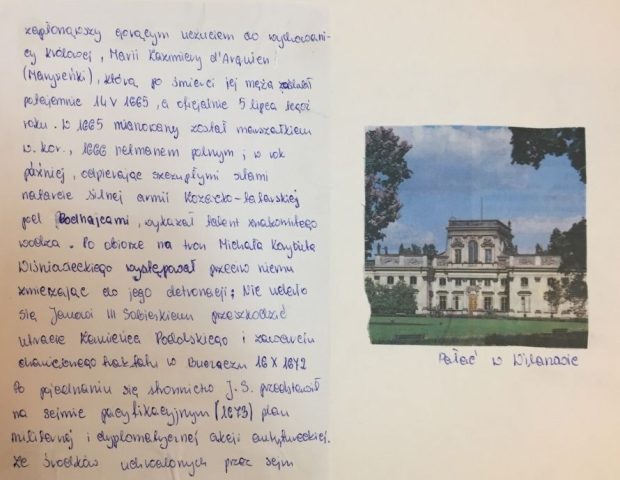 zapłonąwszy gorącym uczuciem do wychowani-
cy królowej, Marii Kazimiery d'Arquien
(Marysieńki), którą po śmierci jej męża zaślubił
potajemnie 14 V 1665, a oficjalnie 5 lipca tegoż
roku. W 1665 mianowany został marszałkiem
w. kor., 1666 hetmanem polnym; w rok
później, odpierając szczupłymi siłami
natarcie silnej armii kozacko-tatarskiej
pod Podhajcami, wykazał talent znakomitego
wodza. Po obiorze na tron Michała Korybuta
Wiśniowieckiego występował przeciw niemu
zmierzając do jego detronizacji; Nie udało
się Janowi III Sobieskiemu przeszkodzić
utracie Kamieńca Podolskiego i zawarciu
traktatu w Buczaczu 16 X 1672
Po pojednaniu się stronnictw J. S. przedstawił
na sejmie pacyfikacyjnym (1673) plan
militarnej i dyplomatycznej akcji antytureckiej.
Ze środków uchwalonych przez sejm
Pałac w Wilanowie